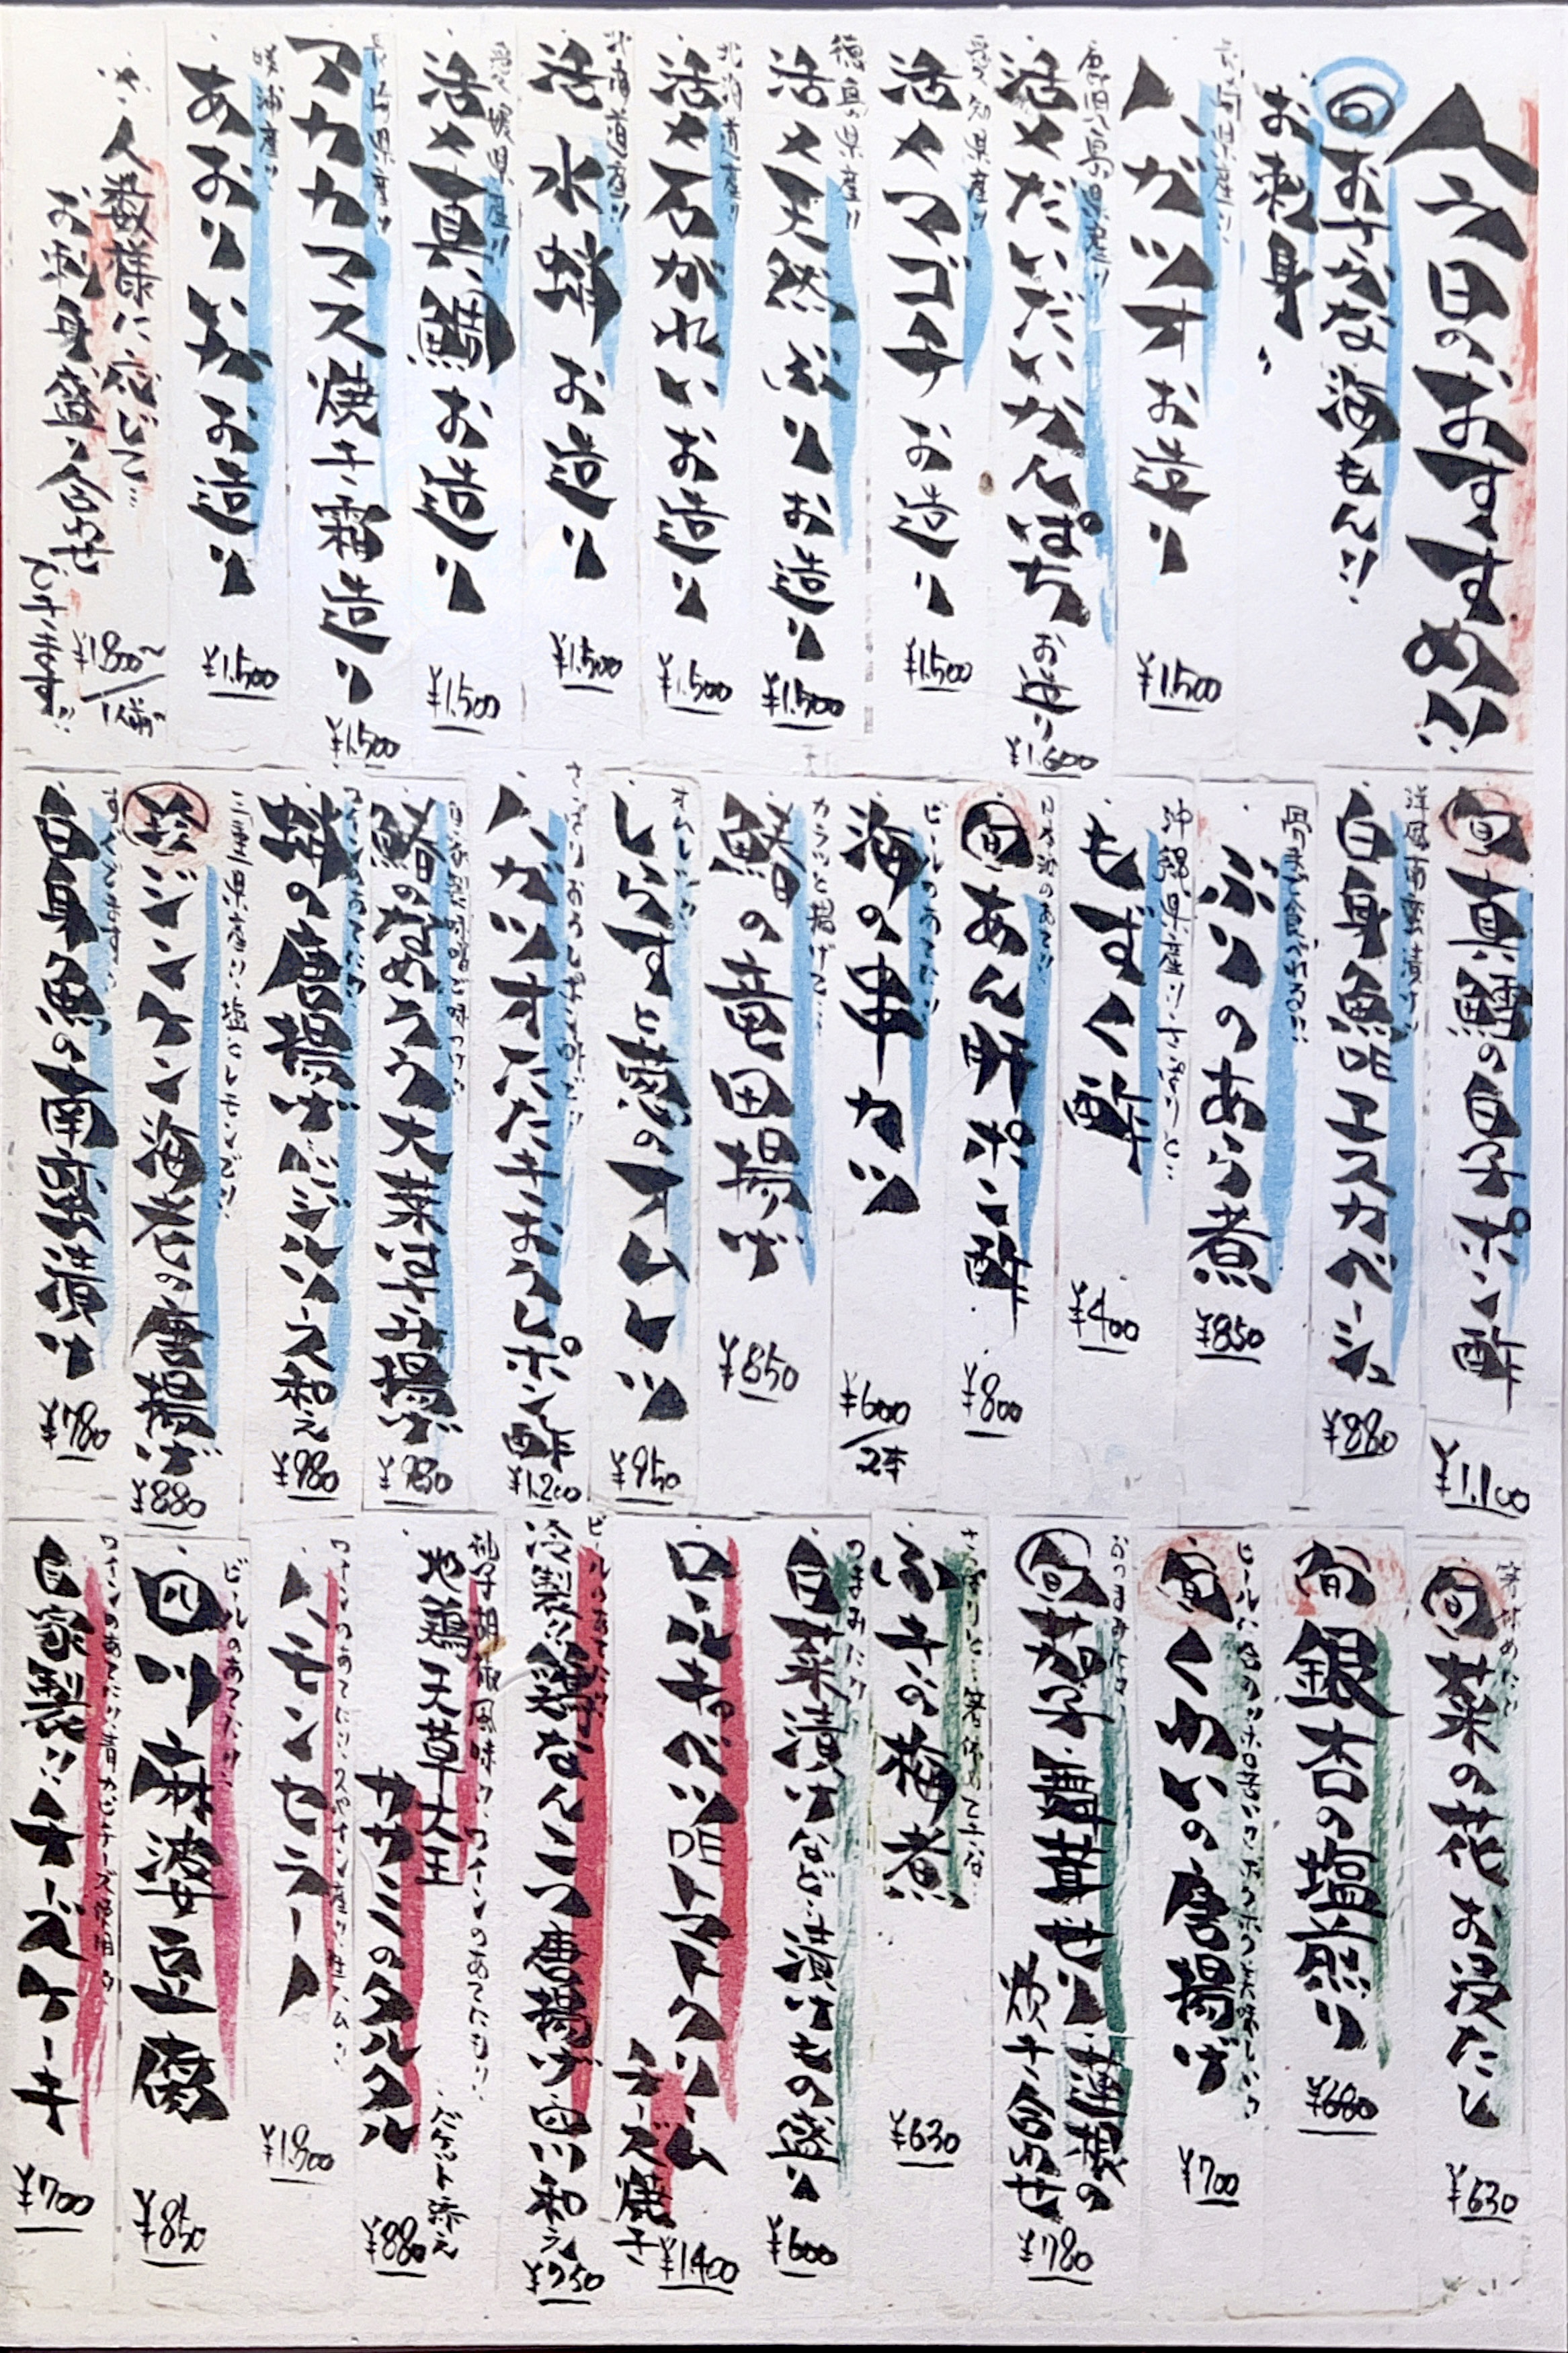 今日のおすすめ!!
旬おさかな海もん!!
お刺身
ハガツオお造り
¥1.500
活〆だいだいかんぱちお造り
¥1.600
愛知県産!!
活〆マゴチお造り
¥1.500
徳島県産!!
活〆天然ぶりお造り
¥1.500
北海道産!!
活〆石がれいお造り
¥1.500
北海道産!!
活水蛸お造り
¥1.500
愛媛県産!!
活〆真鯛お造り
¥1.500
長崎県産!!
アカカマス焼き霜造り
¥1.500
あおりいかお造り
¥1.500
人数様に応じて…
お刺身盛り合わせ
できます!!
¥1.800〜/1人前
旬真鱈の白子ポン酢
¥1.100
洋風南蛮漬け!!
白身魚のエスカベーシュ
¥880
骨まで食べれる!!
ぶりのあら煮
¥850
沖縄県産!!さっぱりと…
もずく酢
¥400
日本酒のあてに!!
旬あん肝ポン酢
¥800
ビールのあてに!!
海の串カツ
¥600/2本
カラッと揚げて…
鰆の竜田揚げ
¥850
オムレツ!!
しらすと葱のオムレツ
¥950
ハガツオたたきおろしポン酢
¥1.200
鰆のなめろう大葉はさみ揚げ
¥930
蛸の唐揚げバジルソース和え
¥980
三重県産!!塩とレモンで!!
珍ジンケン海老の唐揚げ
¥880
白身魚の南蛮漬け
¥780
箸休めに!!
旬菜の花お浸たし
¥630
旬銀杏の塩煎り
¥680
旬くわいの唐揚げ
¥700
おつまみに!!
旬茄子、舞茸、せり、蓮根の炊き合わせ
¥780
さっぱりと…箸休めに…
ふきの梅煮
¥630
つまみに!!
白菜漬け、べったら漬けもの盛り
¥600
ロールキャベツのトマトクリームチーズ焼き
¥1400
ビールのあてに!!
冷製!!鶏なんこつ唐揚げ香味和え
¥750
柚子胡椒風味!!ワインのあてにも!!
地鶏天草大王
ササミのタルタル
バケット添え
¥880
ハモンセラーノ
¥1.300
ビールのあてに!!
四川麻婆豆腐
¥850
自家製!!チーズケーキ
¥700